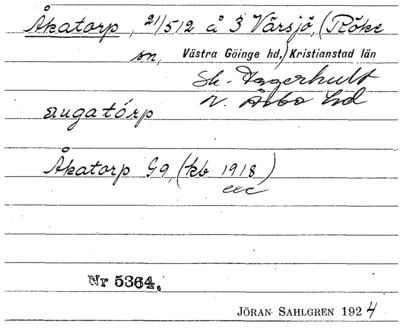 Åkatorp, 21/512 å 3 Värsjö, (Röke
sn, Västra Göinge hd,) Kristianstad län
Sk. Fagerhult
N. Åsbo hd
augatórp
Åkatorp Gg, (kb 1918)
Nr 5364.
JÖRAN SAHLGREN 1924